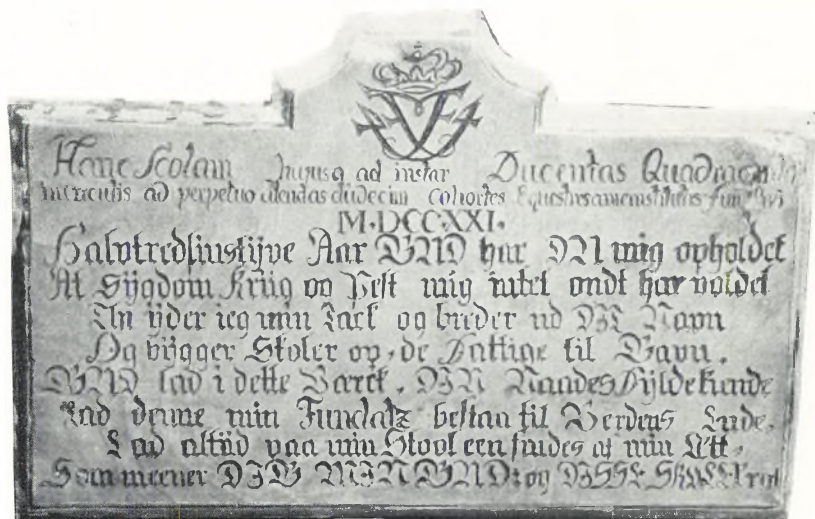 Hanc Scolam hujusq ad instar Ducentas Quadraginta
in ad perpetuo alendas duodecim cohortes Equestris
M·DCC·XXI·
Halvtredsinstÿve Aar GUD har DU mig opholdet
At Sÿgdom Krüg og Pest mig intet ondt har voldet
Nu ÿder ieg min Tack og breder ud DIT Navn
Og bÿgger Skoler op, de Fattige til Gavn,
GUD lad i dette Værck, DIN Naades Fÿlde kiende
Lad denne min Fundatz bestaa til Verdens Ende,
Lad altiid paa min Skool een findes af min Ætt,
Som meener DIG MIN GUD: og DISSE SKOLER ret